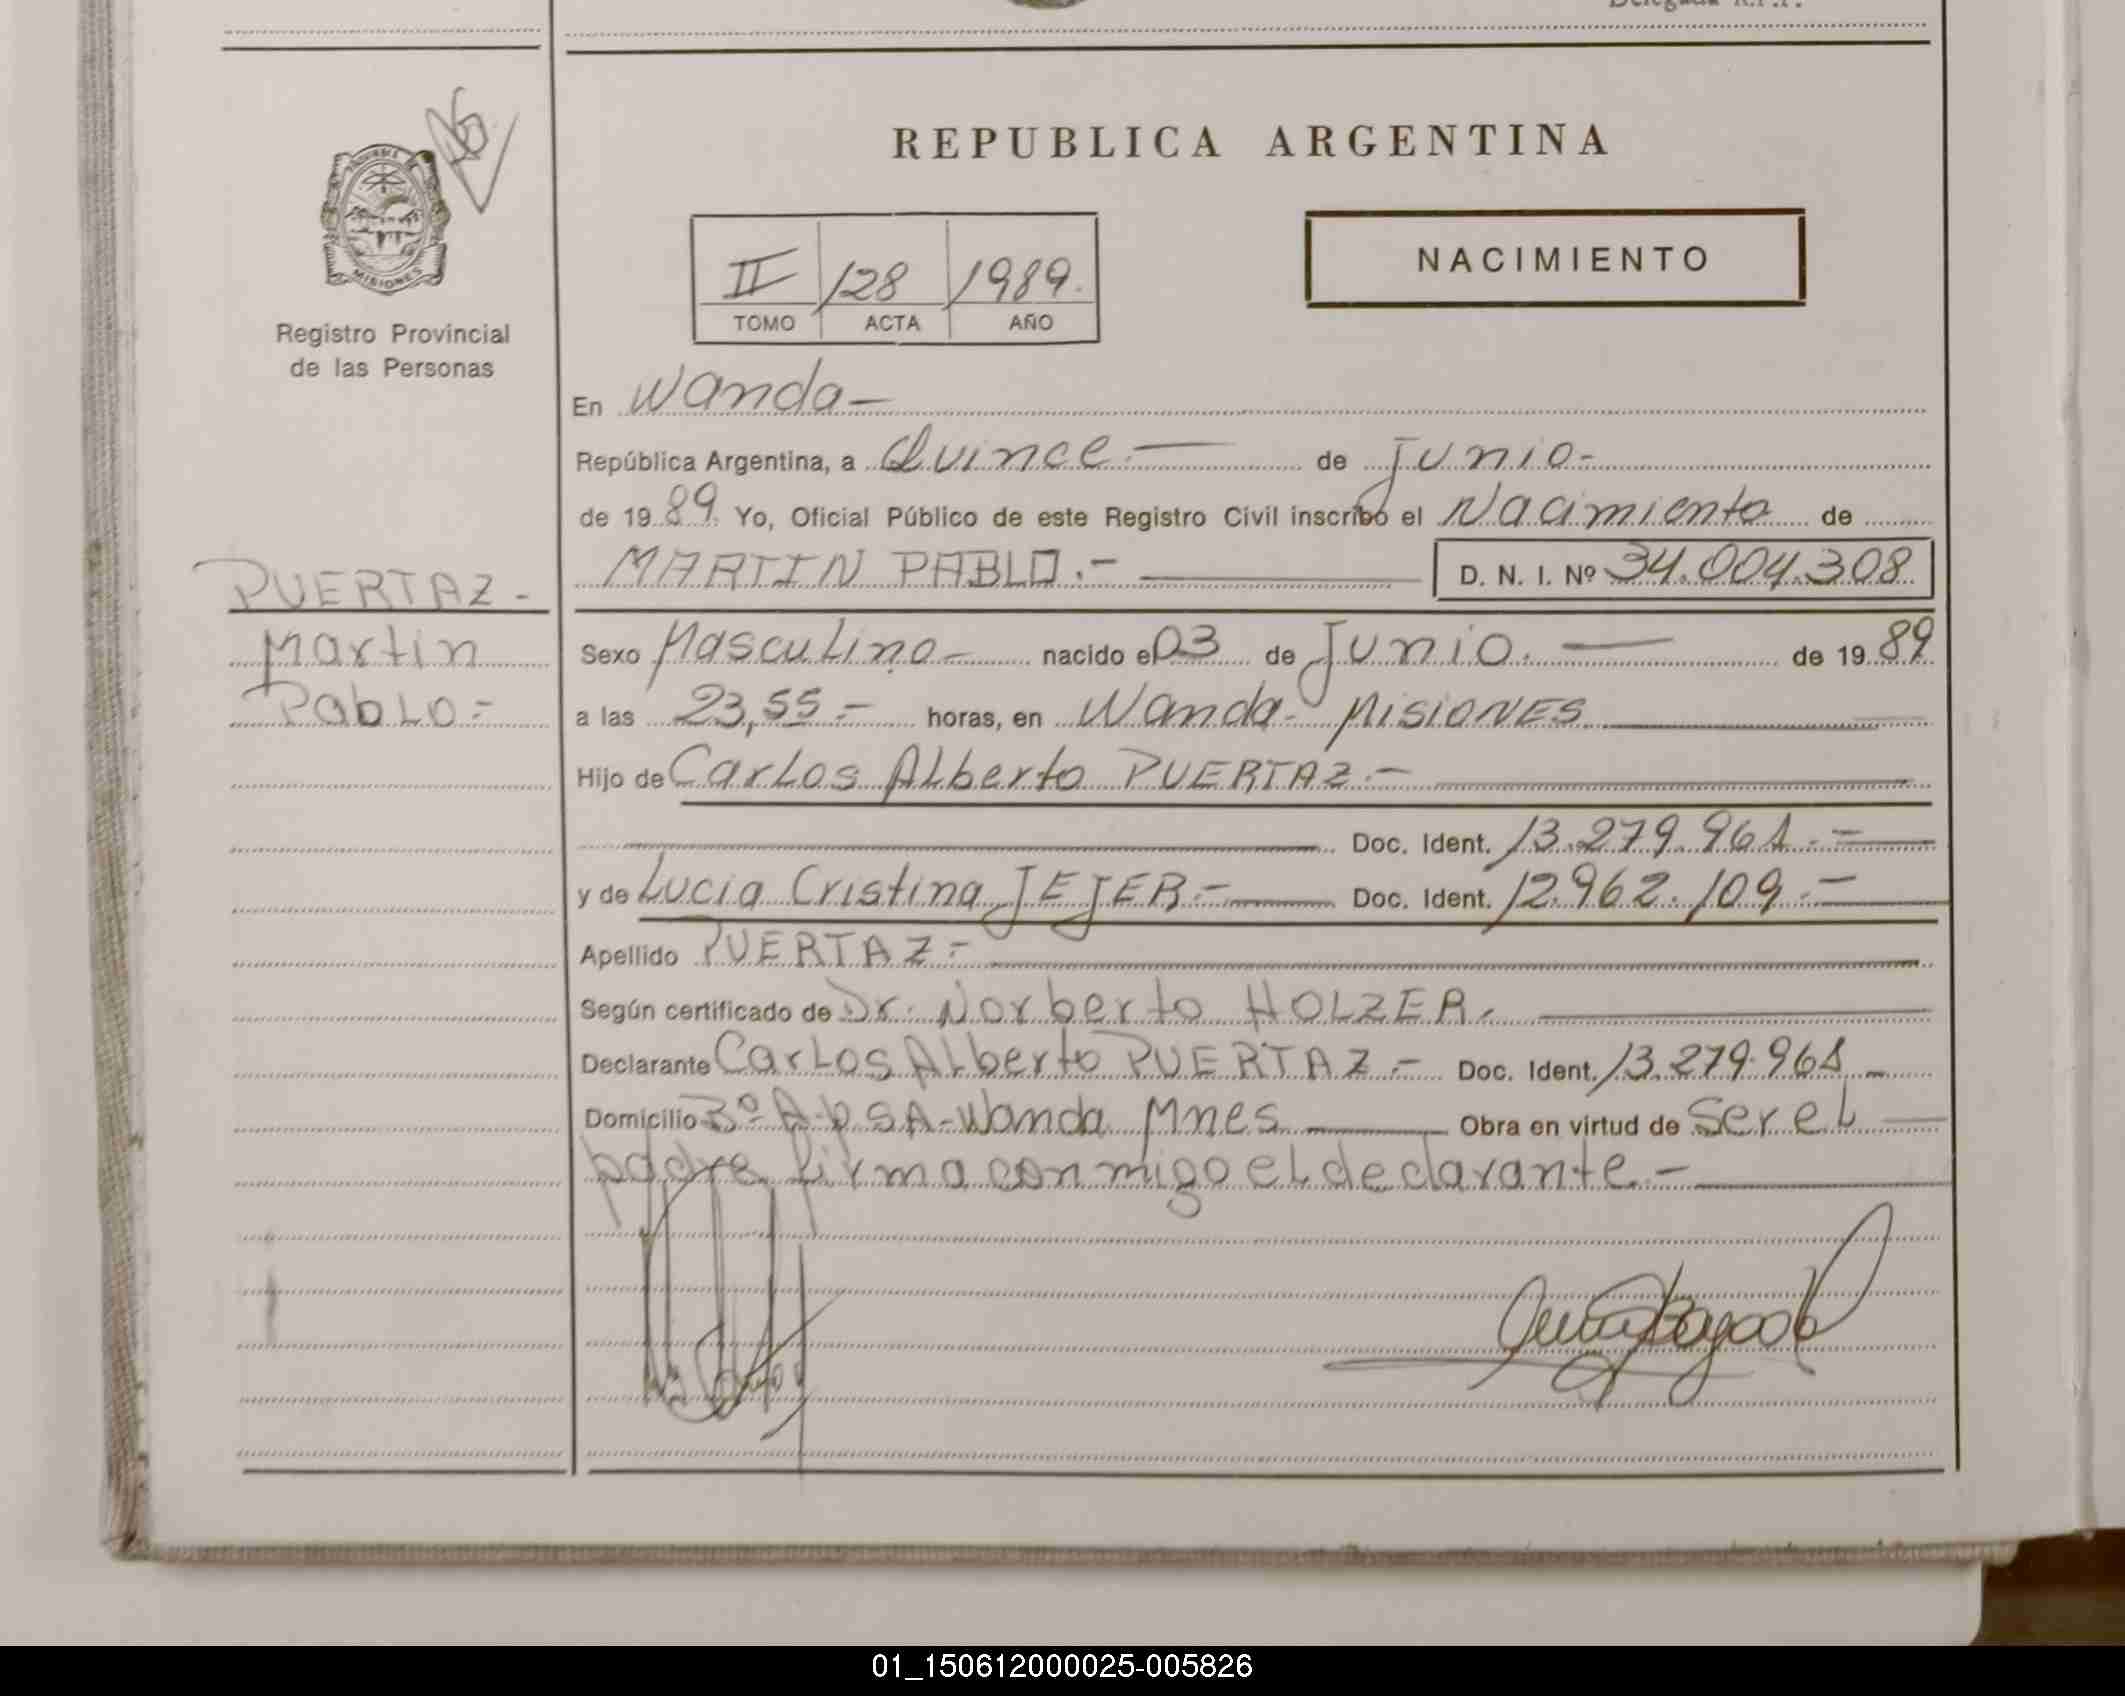 REPUBLICA ARGENTINA
MISIONES
Registro Provincial
de las Personas
II 128 1989.
TOMO ACTA AÑO
NACIMIENTO
En Wanda-
República Argentina, a Quince.- de Junio.-
de 1989. Yo, Oficial Público de este Registro Civil inscribo el Nacimiento de
MARTIN PABLO.- D. N. I. Nº 34.004.308
PUERTAZ-
Martin
Pablo.-
Sexo Masculino- nacido el 03 de Junio. de 1989
a las 23,55.- horas, en Wanda- MISIONES
Hijo de Carlos Alberto PUERTAZ.-
Doc. Ident. 13.279.961.-
y de Lucia Cristina JEJER.- Doc. Ident. 12.962.109.-
Apellido PUERTAZ.-
Según certificado de Dr. Norberto HOLZER.
Declarante Carlos Alberto PUERTAZ.- Doc. Ident. 13.279.961-
Domicilio Bº A.P.S.A-Wanda Mnes Obra en virtud de ser el
padre firma conmigo el declarante.-
01_150612000025-005826